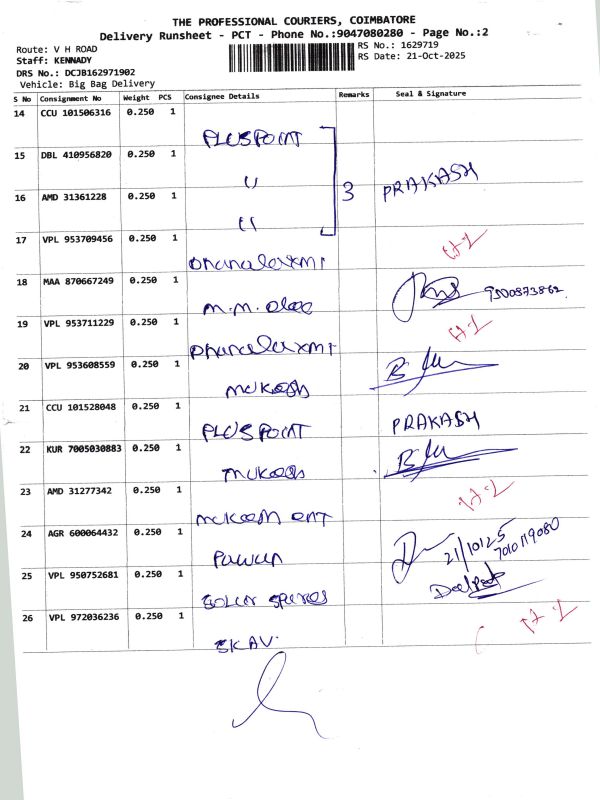 THE PROFESSIONAL COURIERS, COIMBATORE
Delivery Runsheet - PCT - Phone No.:9047080280 - Page No.:2
Route: V H ROAD
RS No.: 1629719
Staff: KENNADY
RS Date: 21-Oct-2025
DRS No.: DCJB162971902
Vehicle: Big Bag Delivery
S No Consignment No Weight PCS Consignee Details Remarks Seal & Signature
14 CCU 101506316 0.250 1 PLUSPOINT
15 DBL 410956820 0.250 1 "
16 AMD 31361228 0.250 1 " 3 PRAKASH
17 VPL 953709456 0.250 1 Dhanalaxmi
18 MAA 870667249 0.250 1 m.m. 9500873862
19 VPL 953711229 0.250 1 Dhanalaxmi
20 VPL 953608559 0.250 1 mukesh
21 CCU 101528048 0.250 1 PLUSPOINT PRAKASH
22 KUR 7005030883 0.250 1 mukesh
23 AMD 31277342 0.250 1 mukesh ent
24 AGR 600064432 0.250 1 Pawun 21/10/25 7010119080
25 VPL 950752681 0.250 1 spares Deepak
26 VPL 972036236 0.250 1 SKAV.